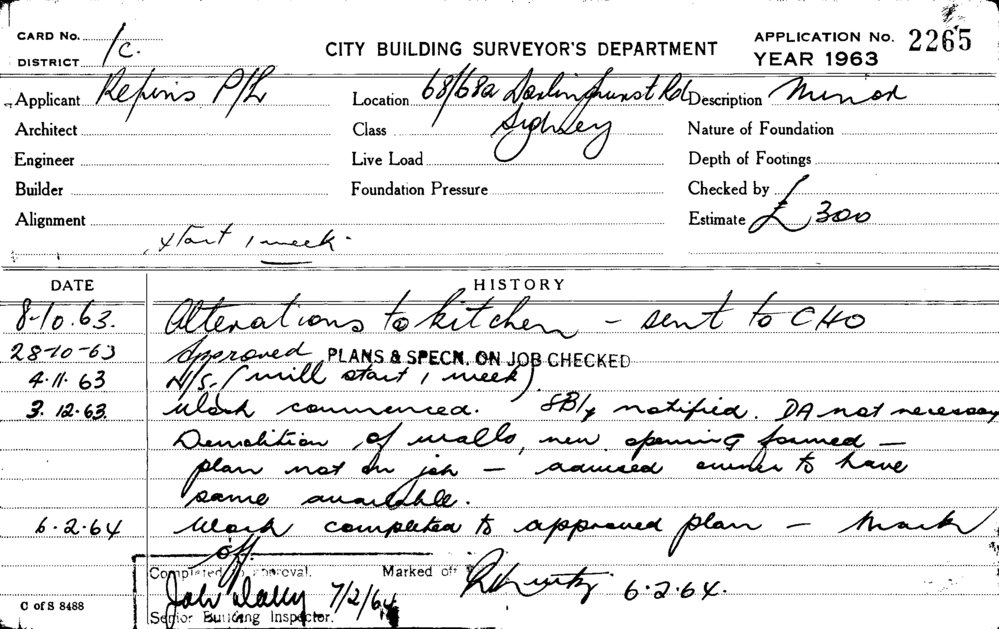 CARD No. 1c. CITY BUILDING SURVEYOR'S DEPARTMENT APPLICATION No. 2265
DISTRICT YEAR 1963
Applicant Repins P/L Location 68/68a Darlinghurst Rd Description Minor
Architect Class Sydney Nature of Foundation
Engineer Live Load Depth of Footings
Builder Foundation Pressure Checked by
Alignment Estimate £300
start 1 week.
DATE HISTORY
8-10.63. Alterations to kitchen - sent to CHO
28-10-63 Approved PLANS & SPECN. ON JOB CHECKED
4.11.63 N/S. (will start 1 week).
3.12.63. Work commenced. notified. DA not necessary
Demolition of walls, new opening formed -
plan not on job - advised owner to have
same available.
6.2.64 Work completed to approved plan - Mark
off.
Completed approval. Marked off
7/2/64 6.2.64.
Senior Building Inspector.
C of S 8488